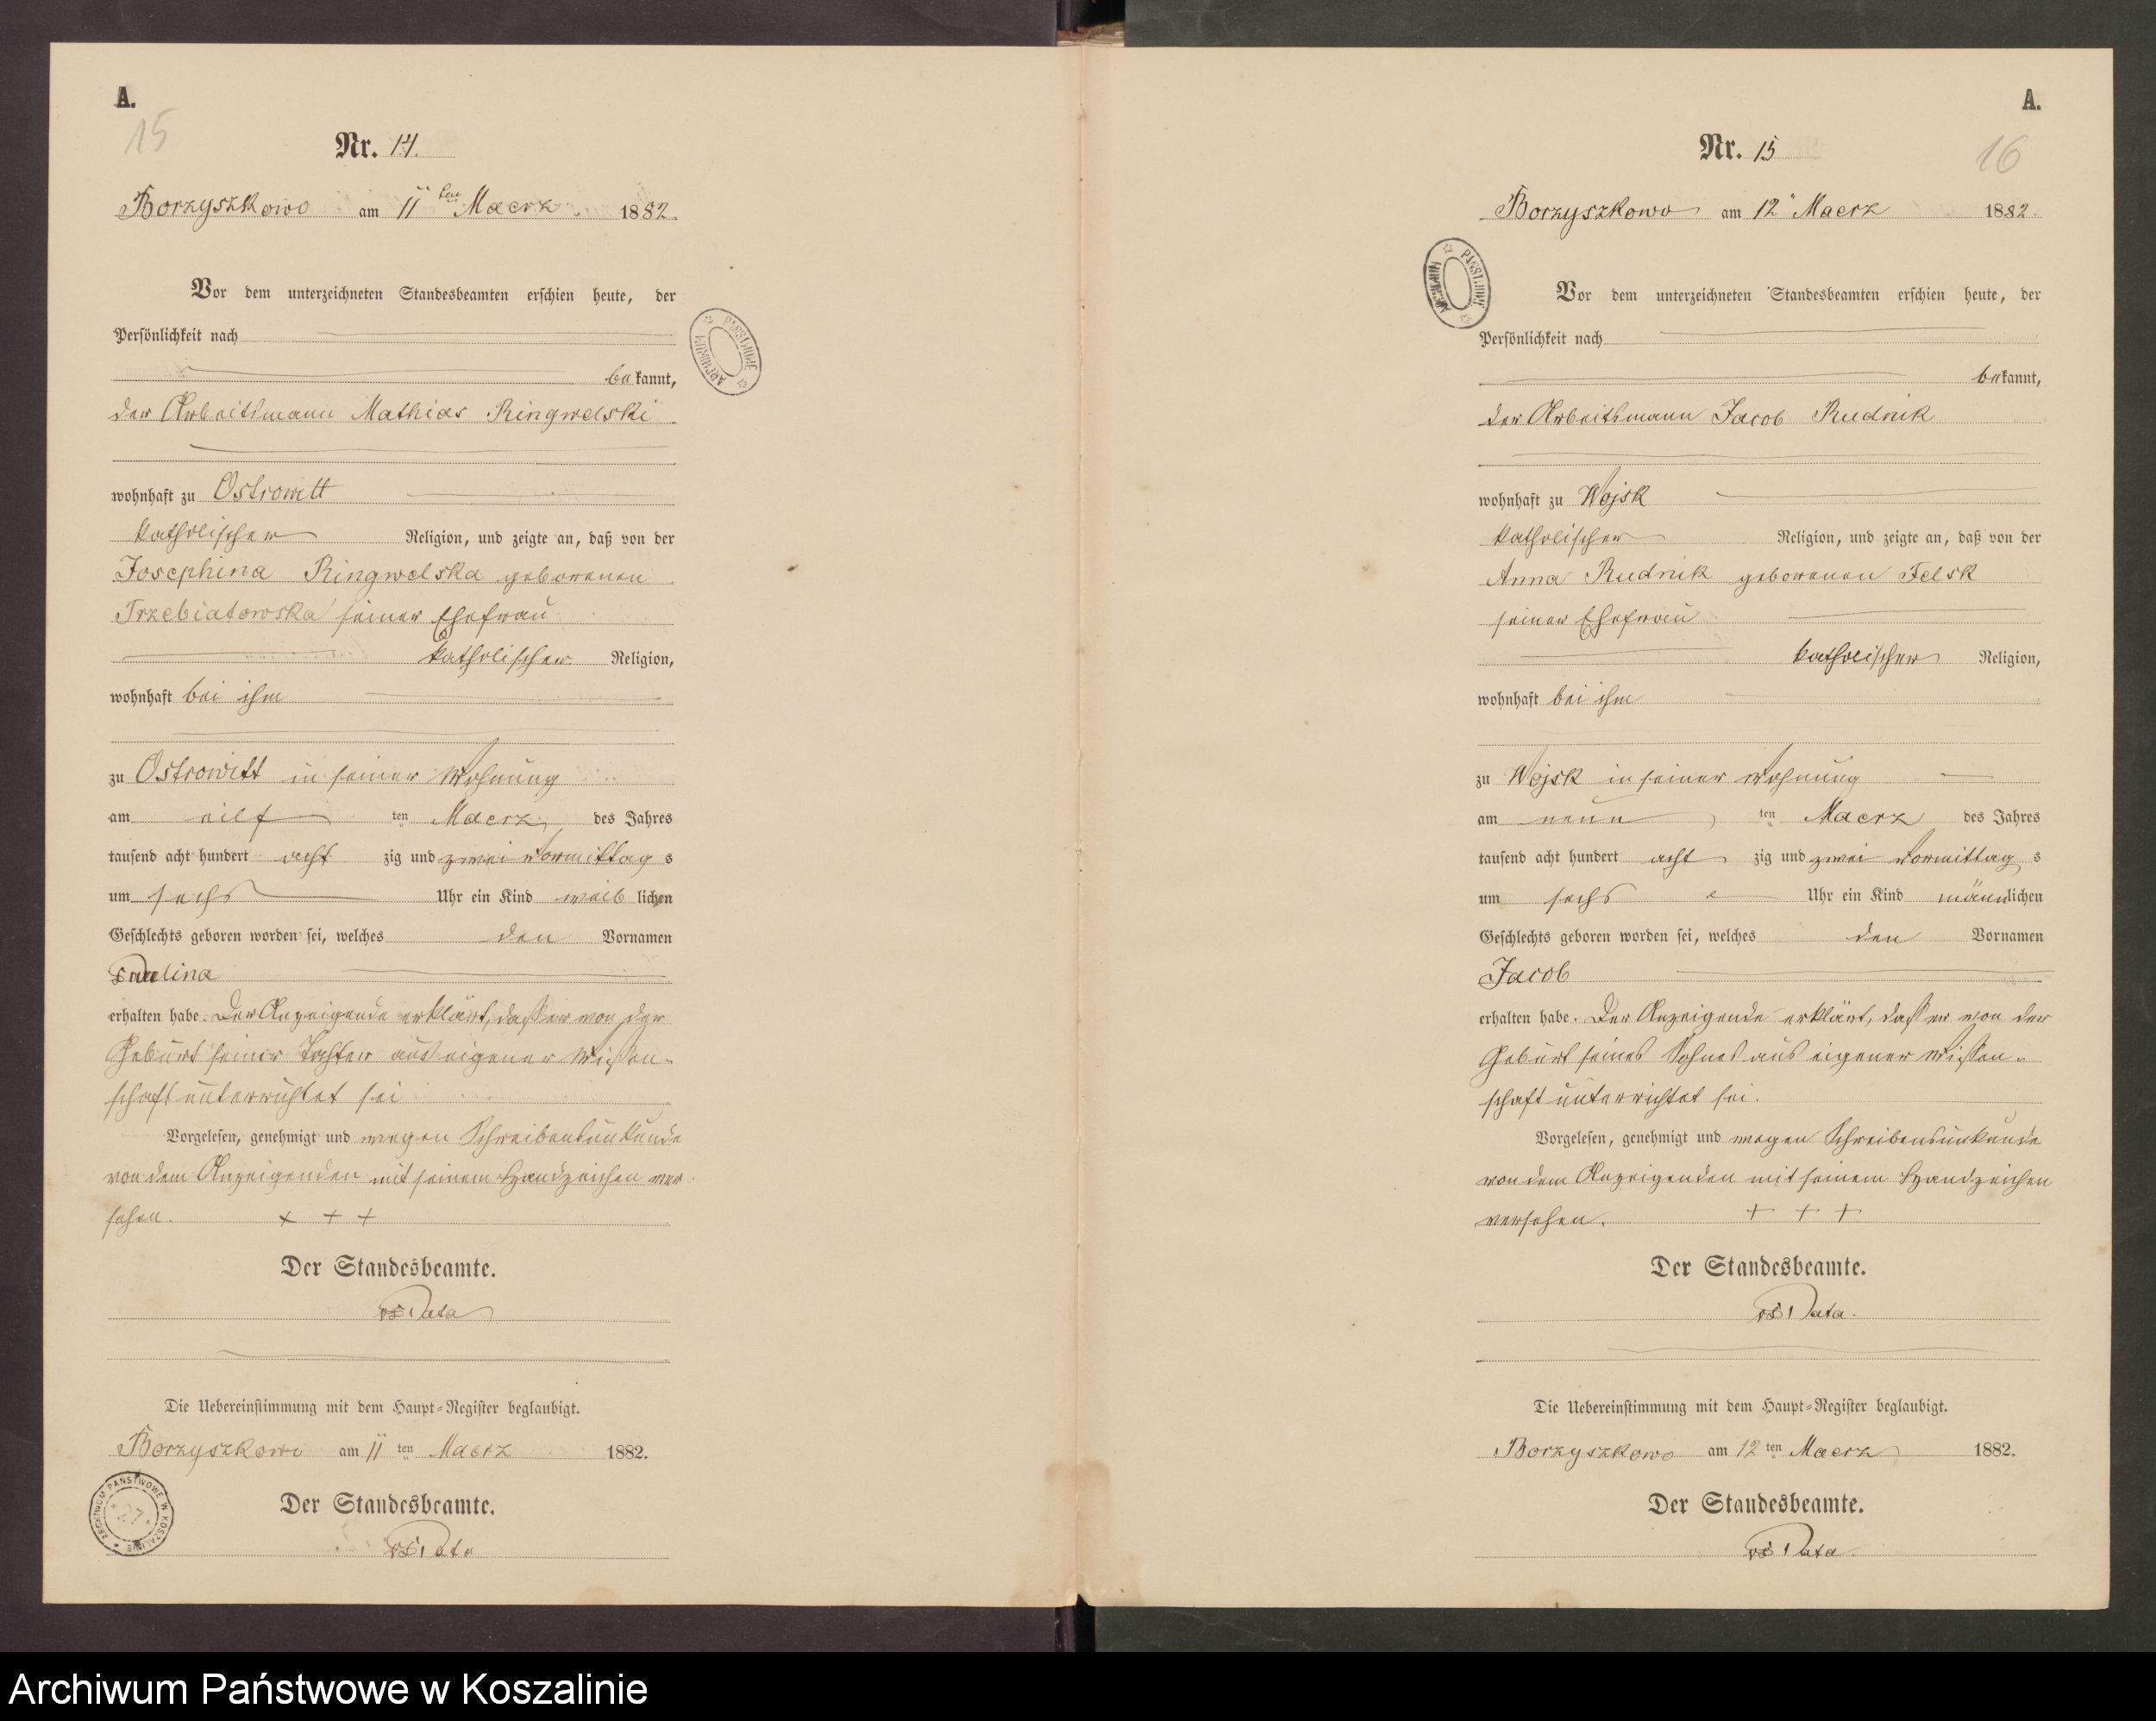 A.
15
Nr. 14.
Borzyszkowo am 11ten Maerz 1882.
Vor dem unterzeichneten Standesbeamten erschien heute, der
Persönlichkeit nach
bekannt,
der Arbeitsmann Mathias Ringwelski
wohnhaft zu Ostrowitt
katholischer Religion, und zeigte an, daß von der
Josephina Ringwelska geborenen
Trzebiatowska seiner Ehefrau
katholischer Religion,
wohnhaft bei ihm
zu Ostrowitt in seiner Wohnung
am eilf ten Maerz des Jahres
tausend acht hundert acht zig und zwei Vormittag s
um sechs Uhr ein Kind weib lichen
Geschlechts geboren worden sei, welches den Vornamen
Paulina
erhalten habe. Der Anzeigende erklärt, dass er von der
Geburt seiner Tochter aus eigener Wissen-
schaft unterrichtet sei
Vorgelesen, genehmigt und wegen Schreibensunkunde
von dem Anzeigenden mit seinem Handzeichen ver-
sehen. + + +
Der Standesbeamte.
Pata
Die Uebereinstimmung mit dem Haupt-Register beglaubigt.
Borzyszkowo am 11 ten Maerz 1882.
Der Standesbeamte.
Pata
ARCHIWUM PAŃSTWOWE W KOSZALINIE
27
ARCHIWUM PAŃSTWOWE
A.
16
Nr. 15
Borzyszkowo am 12" Maerz 1882.
ARCHIWUM PAŃSTWOWE
Vor dem unterzeichneten Standesbeamten erschien heute, der
Persönlichkeit nach
bekannt,
der Arbeitsmann Jacob Rudnik
wohnhaft zu Wojsk
katholischer Religion, und zeigte an, daß von der
Anna Rudnik geborenen Felsk
seiner Ehefrau
katholischer Religion,
wohnhaft bei ihm
zu Wojsk in seiner Wohnung
am neun ten Maerz des Jahres
tausend acht hundert acht zig und zwei Vormittag s
um sechs Uhr ein Kind männlichen
Geschlechts geboren worden sei, welches den Vornamen
Jacob
erhalten habe. Der Anzeigende erklärt, dass er von der
Geburt seines Sohnes aus eigener Wissen-
schaft unterrichtet sei.
Vorgelesen, genehmigt und wegen Schreibensunkunde
von dem Anzeigenden mit seinem Handzeichen
versehen. + + +
Der Standesbeamte.
Pata.
Die Uebereinstimmung mit dem Haupt-Register beglaubigt.
Borzyszkowo am 12 ten Maerz 1882.
Der Standesbeamte.
Pata.
Archiwum Państwowe w Koszalinie